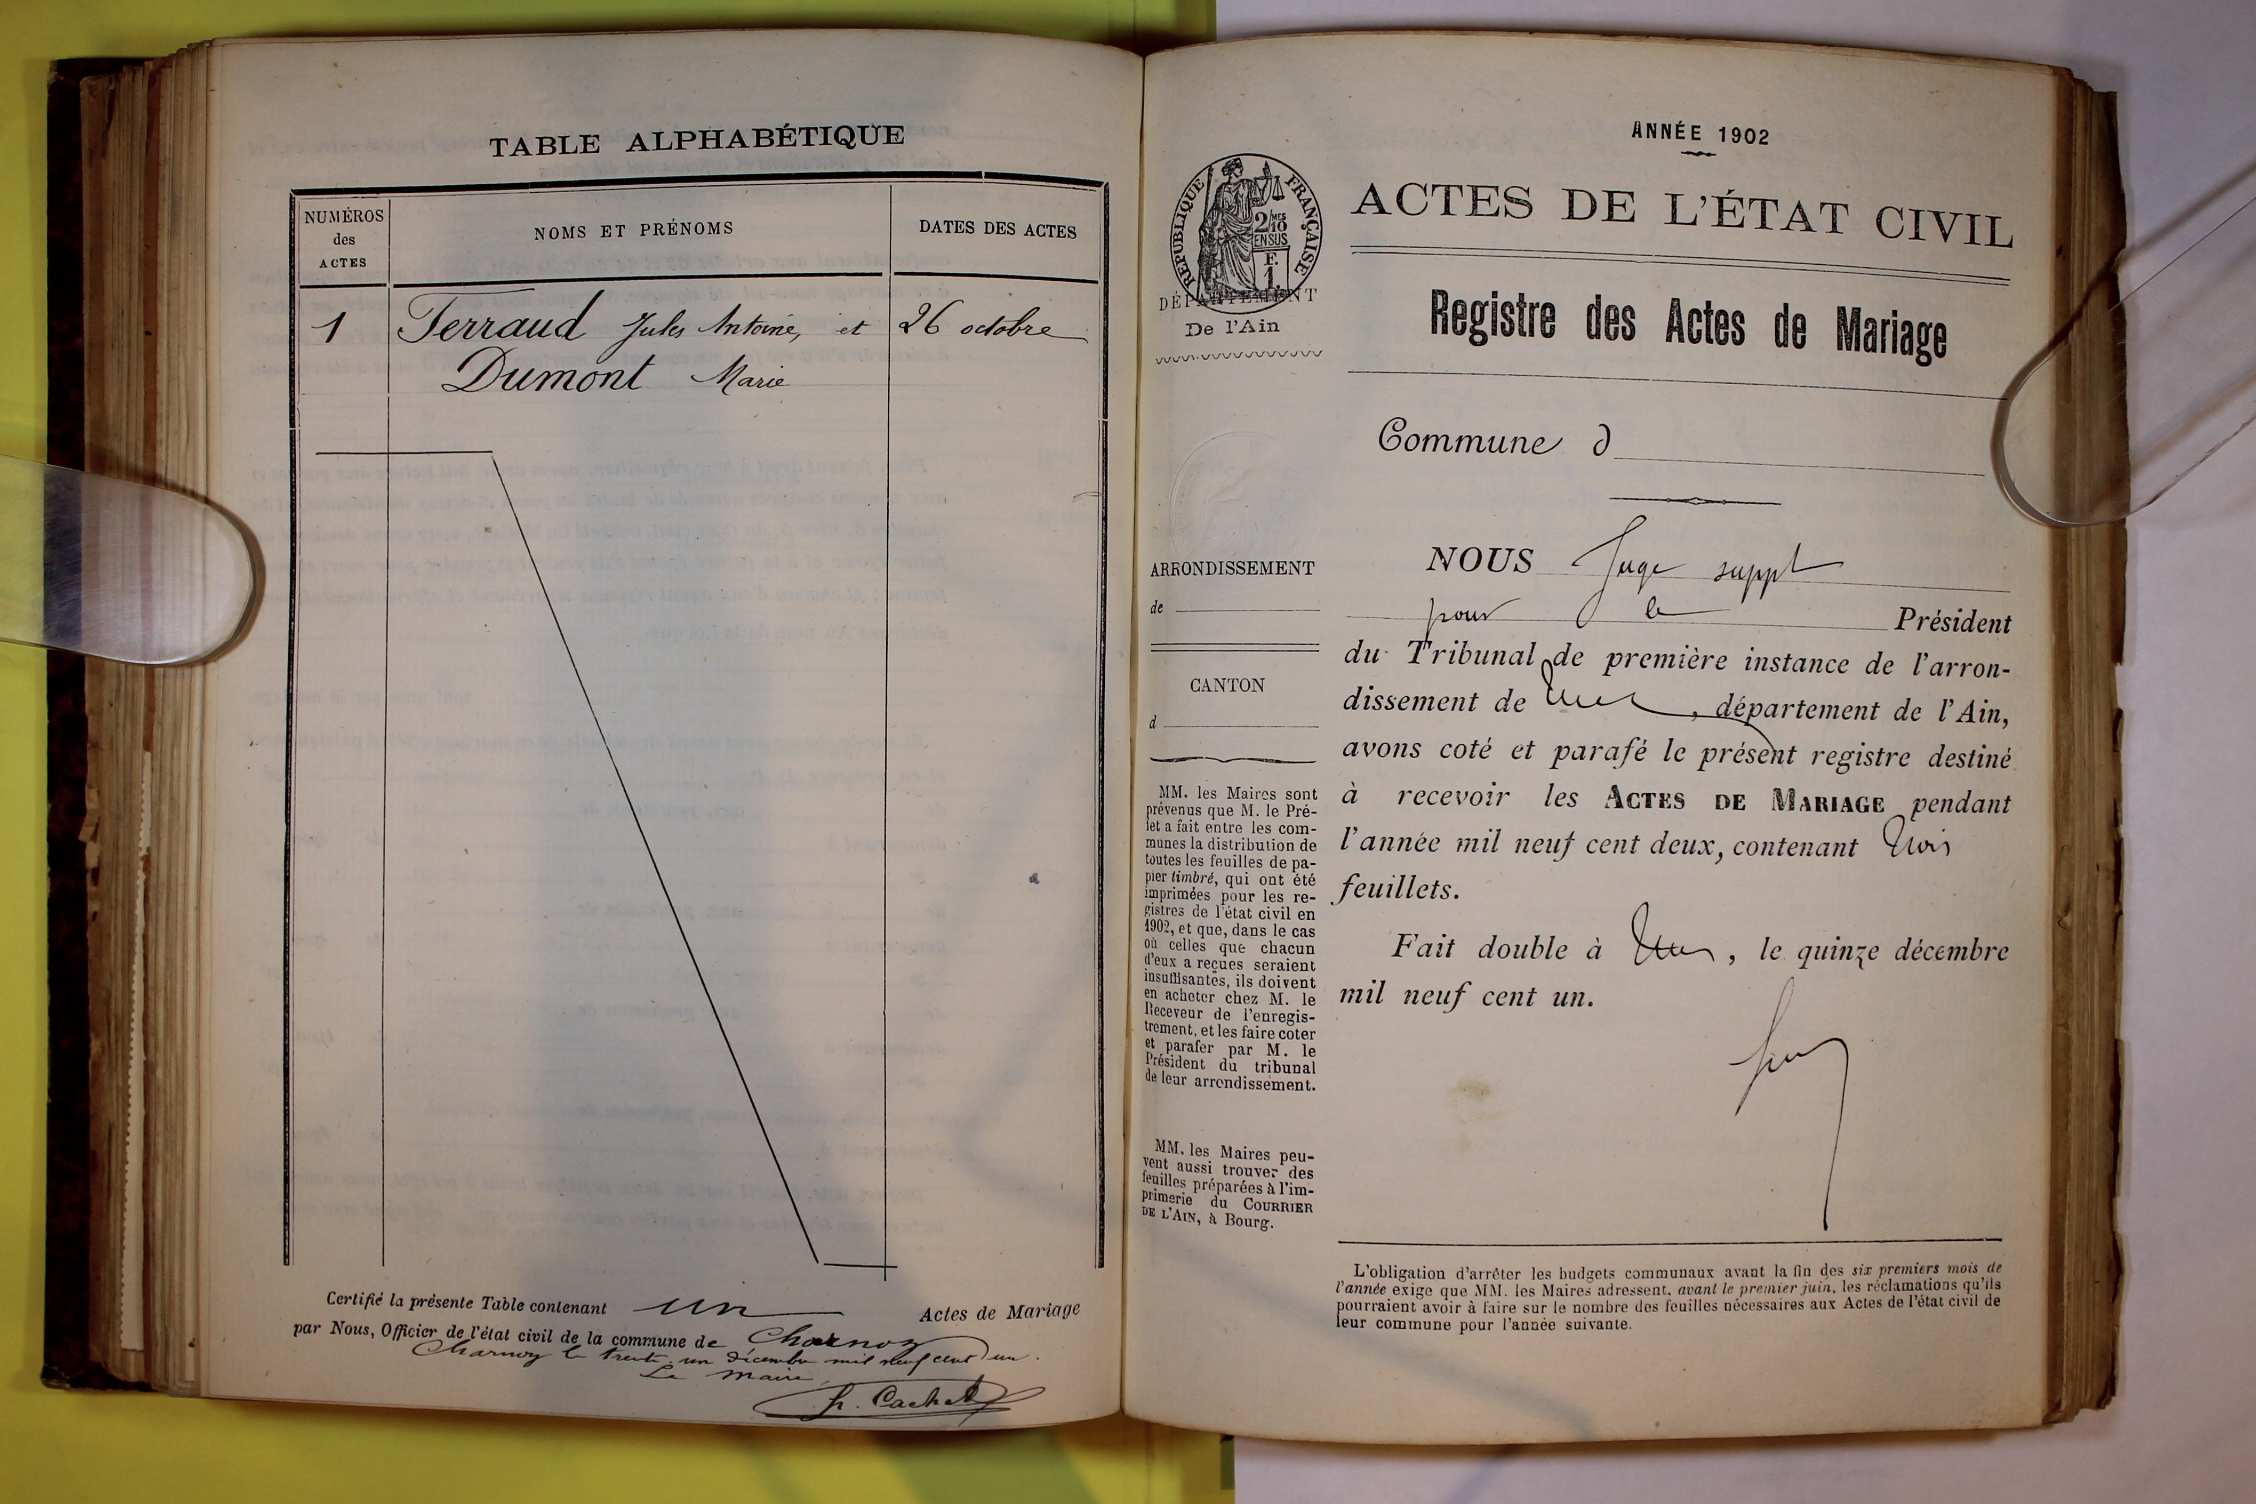 TABLE ALPHABÉTIQUE
NUMÉROS
des
ACTES
NOMS ET PRÉNOMS
DATES DES ACTES
1
Ferraud Jules Antoine, et
26 octobre
Dumont Marie
Certifié la présente Table contenant un Actes de Mariage
par Nous, Officier de l'état civil de la commune de Charnoz
Charnoz le trente un décembre mil neuf cent un.
Le Maire,
Cachet
ANNÉE 1902
RÉPUBLIQUE FRANÇAISE
2/10 MES
EN SUS
F.
1.
DÉPARTEMENT
De l'Ain
ARRONDISSEMENT
de
CANTON
d
MM. les Maires sont
prévenus que M. le Pré-
fet a fait entre les com-
munes la distribution de
toutes les feuilles de pa-
pier timbré, qui ont été
imprimées pour les re-
gistres de l'état civil en
1902, et que, dans le cas
où celles que chacun
d'eux a reçues seraient
insuffisantes, ils doivent
en acheter chez M. le
Receveur de l'enregis-
trement, et les faire coter
et parafer par M. le
Président du tribunal
de leur arrondissement.
MM. les Maires peu-
vent aussi trouver des
feuilles préparées à l'im-
primerie du COURRIER
DE L'AIN, à Bourg.
ACTES DE L'ÉTAT CIVIL
Registre des Actes de Mariage
Commune d
NOUS Juge suppt
pour le Président
du Tribunal de première instance de l'arron-
dissement de , département de l'Ain,
avons coté et parafé le présent registre destiné
à recevoir les ACTES DE MARIAGE pendant
l'année mil neuf cent deux, contenant trois
feuillets.
Fait double à , le quinze décembre
mil neuf cent un.
L'obligation d'arrêter les budgets communaux avant la fin des six premiers mois de
l'année exige que MM. les Maires adressent, avant le premier juin, les réclamations qu'ils
pourraient avoir à faire sur le nombre des feuilles nécessaires aux Actes de l'état civil de
leur commune pour l'année suivante.